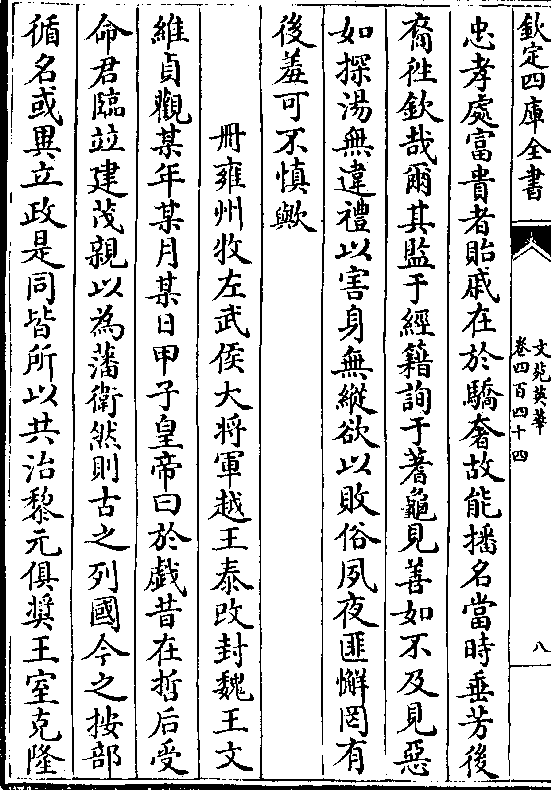 欽定四庫全書
文苑英華
卷四百四十四
八
忠孝處富貴者貽戚在於驕奢故能播名當時垂芳後
裔徃欽哉爾其監于經籍詢于蓍龜見善如不及見惡
如探湯無違禮以害身無縱欲以敗俗夙夜匪懈罔有
後羞可不慎歟
冊雍州牧左武侯大将軍越王泰改封魏王文
維貞觀某年某月某日甲子皇帝曰於戲昔在哲后受
命君臨竝建茂親以為藩衛然則古之列國今之按部
循名或異立政是同皆所以共治黎元俱奨王室克隆